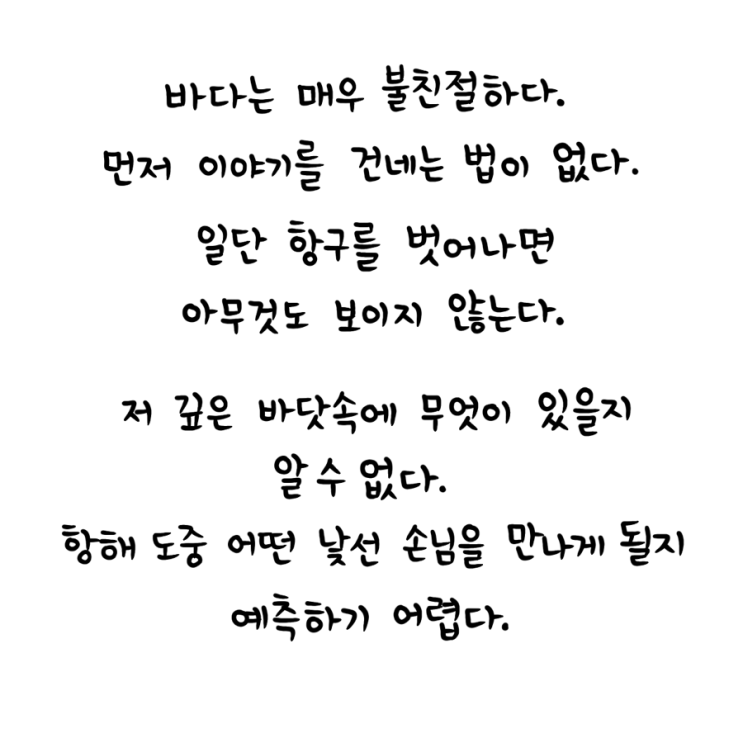 바다는 매우 불친절하다.
먼저 이야기를 건네는 법이 없다.
일단 항구를 벗어나면
아무것도 보이지 않는다.
저 깊은 바닷속에 무엇이 있을지
알 수 없다.
항해 도중 어떤 낯선 손님을 만나게 될지
예측하기 어렵다.